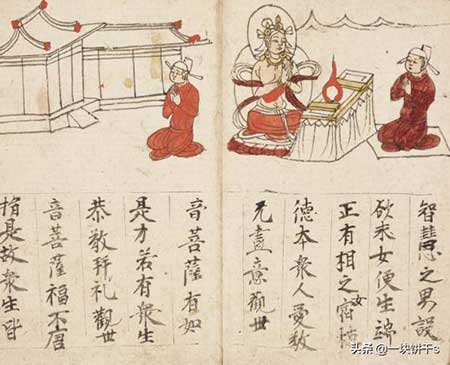 智慧之男設
欲求女便生端
正有相之女宿植
德本衆人愛敬
无盡意觀世
音菩薩有如
是力若有衆生
恭敬拜礼觀世
音菩薩福不唐
捐是故衆生皆
头条 @一块饼干s